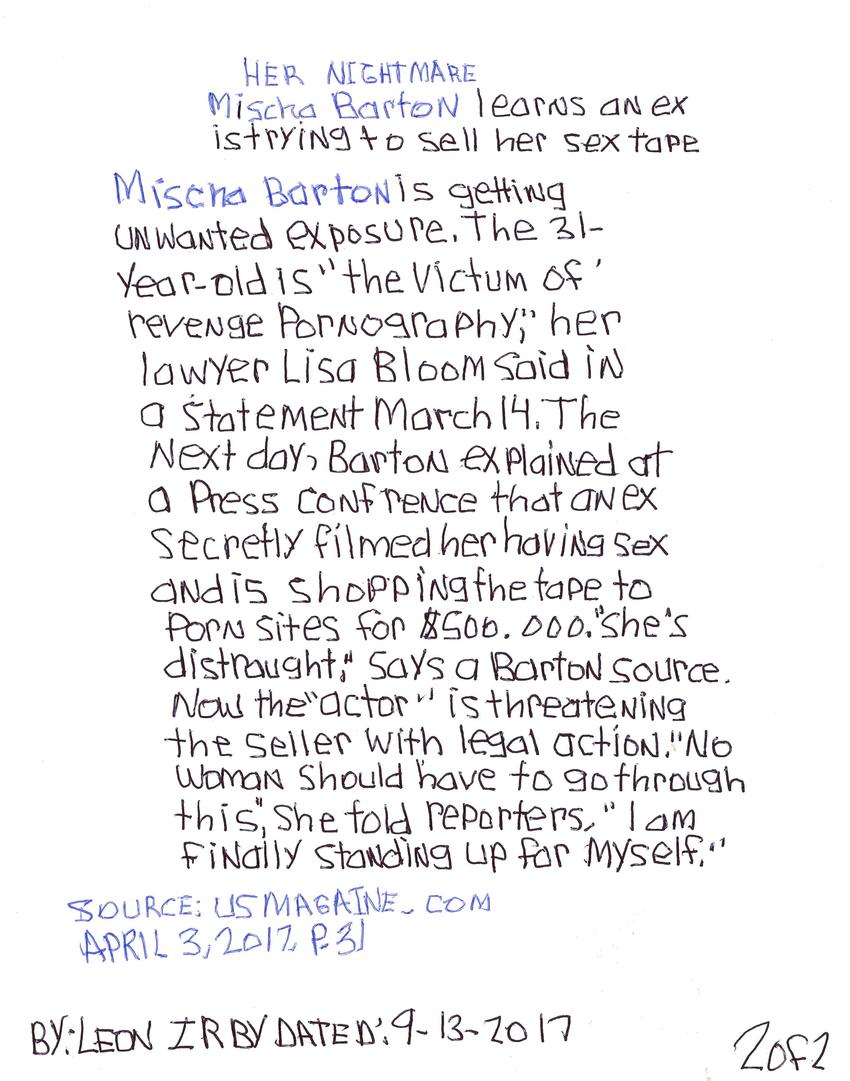 HER NIGHTMARE
Mischa Barton learns an ex
is trying to sell her sex tape
Mischa Barton is getting
unwanted exposure. The 31-
year-old is "the victum of '
revenge pornography," her
lawyer Lisa Bloom said in
a statement March 14. The
next day, Barton explained at
a press confrence that an ex
secretly filmed her having sex
and is shopping the tape to
porn sites for $500.000. "she's
distraught," says a Barton source.
Now the "actor" is threatening
the seller with legal action. "No
woman should have to go through
this", she told reporters, "I am
finally standing up for myself."
SOURCE: USMAGAINE. COM
APRIL 3, 2017, P.31
BY: LEON IRBY DATED: 9-13-2017
2 of 2